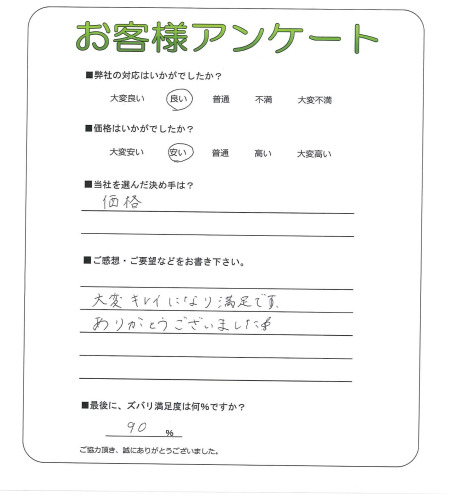 お客様アンケート
■弊社の対応はいかがでしたか？
大変良い 良い 普通 不満 大変不満
■価格はいかがでしたか？
大変安い 安い 普通 高い 大変高い
■当社を選んだ決め手は？
価格
■ご感想・ご要望などをお書き下さい。
大変キレイになり満足です
ありがとうございました
■最後に、ズバリ満足度は何%ですか？
90 %
ご協力頂き、誠にありがとうございました。